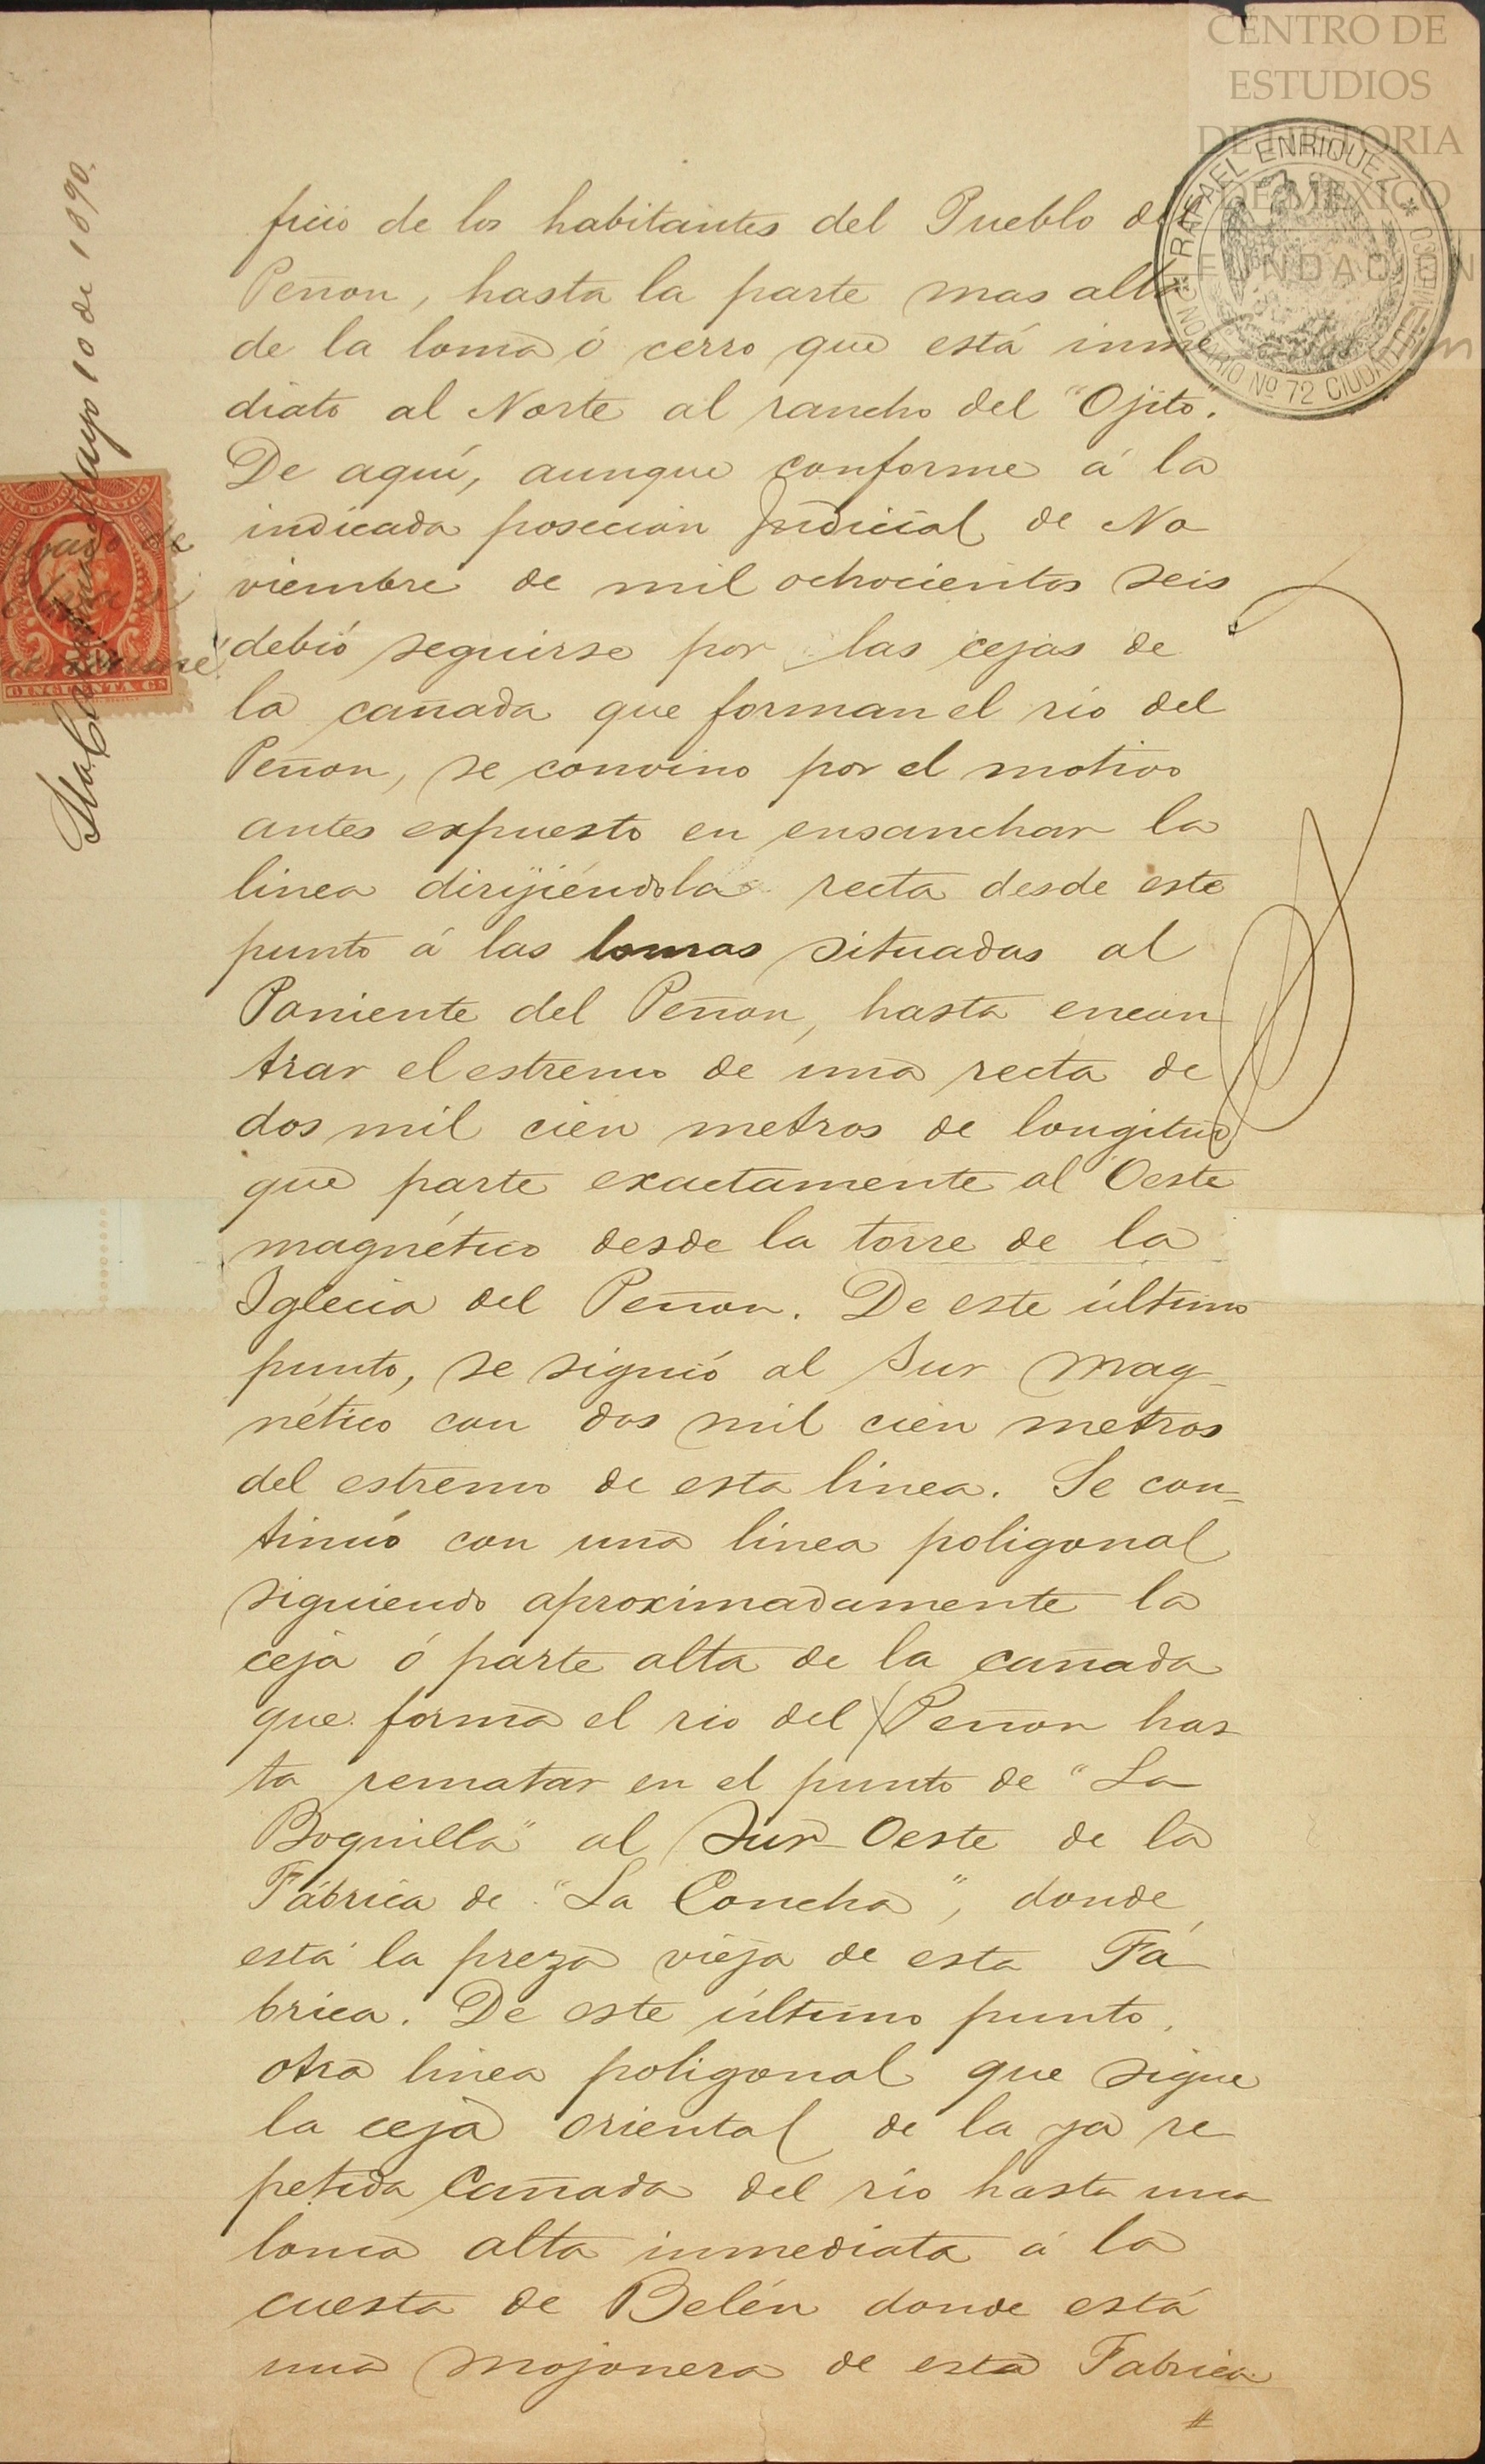 CENTRO DE
ESTUDIOS
DE HISTORIA
DE MEXICO
FUNDACIÓN
RAFAEL ENRIQUEZ
NOTARIO Nº 72 CIUDAD
Mayo 10 de 1890.
CINCUENTA CS
ficio de los habitantes del Pueblo del
Peñon, hasta la parte mas alta
de la loma ó cerro que está inme
diato al Norte al rancho del "Ojito".
De aquí, aunque conforme á la
indicada posecion Judicial de No
viembre de mil ochocientos seis
debió seguirse por las cejas de
la cañada que forman el rio del
Peñon, se convino por el motivo
antes expuesto en ensanchar la
linea dirijiéndola recta desde este
punto á las lomas situadas al
Poniente del Peñon, hasta encon
trar el estremo de una recta de
dos mil cien metros de longitud
que parte exactamente al Oeste
magnético desde la torre de la
Iglecia del Peñon. De este último
punto, se siguió al Sur mag-
nético con dos mil cien metros
del estremo de esta linea. Se con-
tinuó con una linea poligonal
siguiendo aproximadamente la
ceja ó parte alta de la cañada
que forma el rio del Peñon has
ta rematar en el punto de "La
Boquilla" al Sur-Oeste de la
Fábrica de "La Concha", donde
está la preza vieja de esta Fá
brica. De este último punto,
otra linea poligonal que sigue
la ceja oriental de la ya re
petida Cañada del rio hasta una
loma alta inmediata á la
cuesta de Belén donde está
una mojonera de esta Fabrica
#